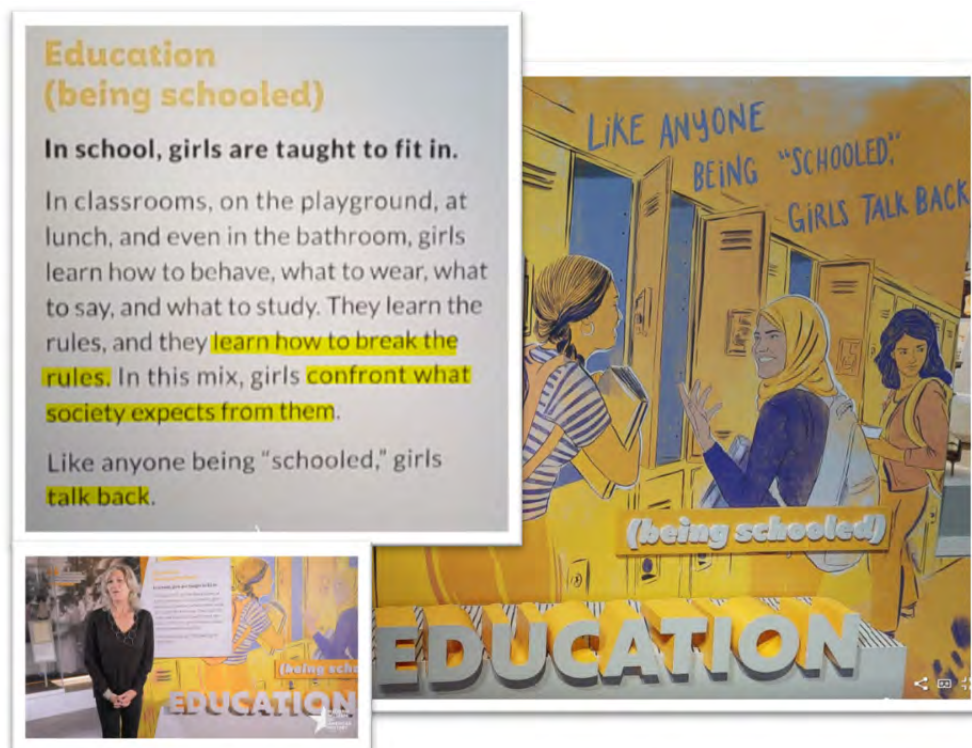 Education
(being schooled)
In school, girls are taught to fit in.
In classrooms, on the playground, at
lunch, and even in the bathroom, girls
learn how to behave, what to wear, what
to say, and what to study. They learn the
rules, and they learn how to break the
rules. In this mix, girls confront what
society expects from them.
Like anyone being "schooled," girls
talk back.
LIKE ANYONE
BEING "SCHOOLED,"
GIRLS TALK BACK
(being schooled)
EDUCATION
(being scho
EDUCATION